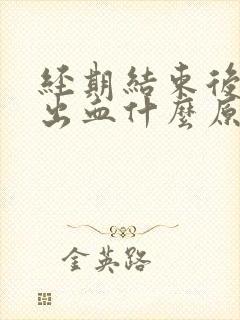 經期結束後
出血什麼原
金英路